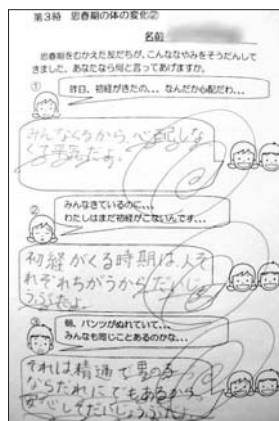 第3時 思春期の体の変化②
名前
思春期をむかえた友だちが、こんななやみをそうだんして
きました。あなたなら何と言ってあげますか。
①
昨日、初経がきたの... なんだか心配だわ...
みんなくるから、心配しな
くて平気だよ。
②
みんなきているのに...
わたしはまだ初経がこないんです...
初経がくる時期は、人そ
れぞれちがうからだいじ
ょうぶだよ
③
朝、パンツがぬれていて...
みんなも同じことあるのかな...
それは精通で男の子
ならだれにでもあるから
安心してだいじょうぶだよ。